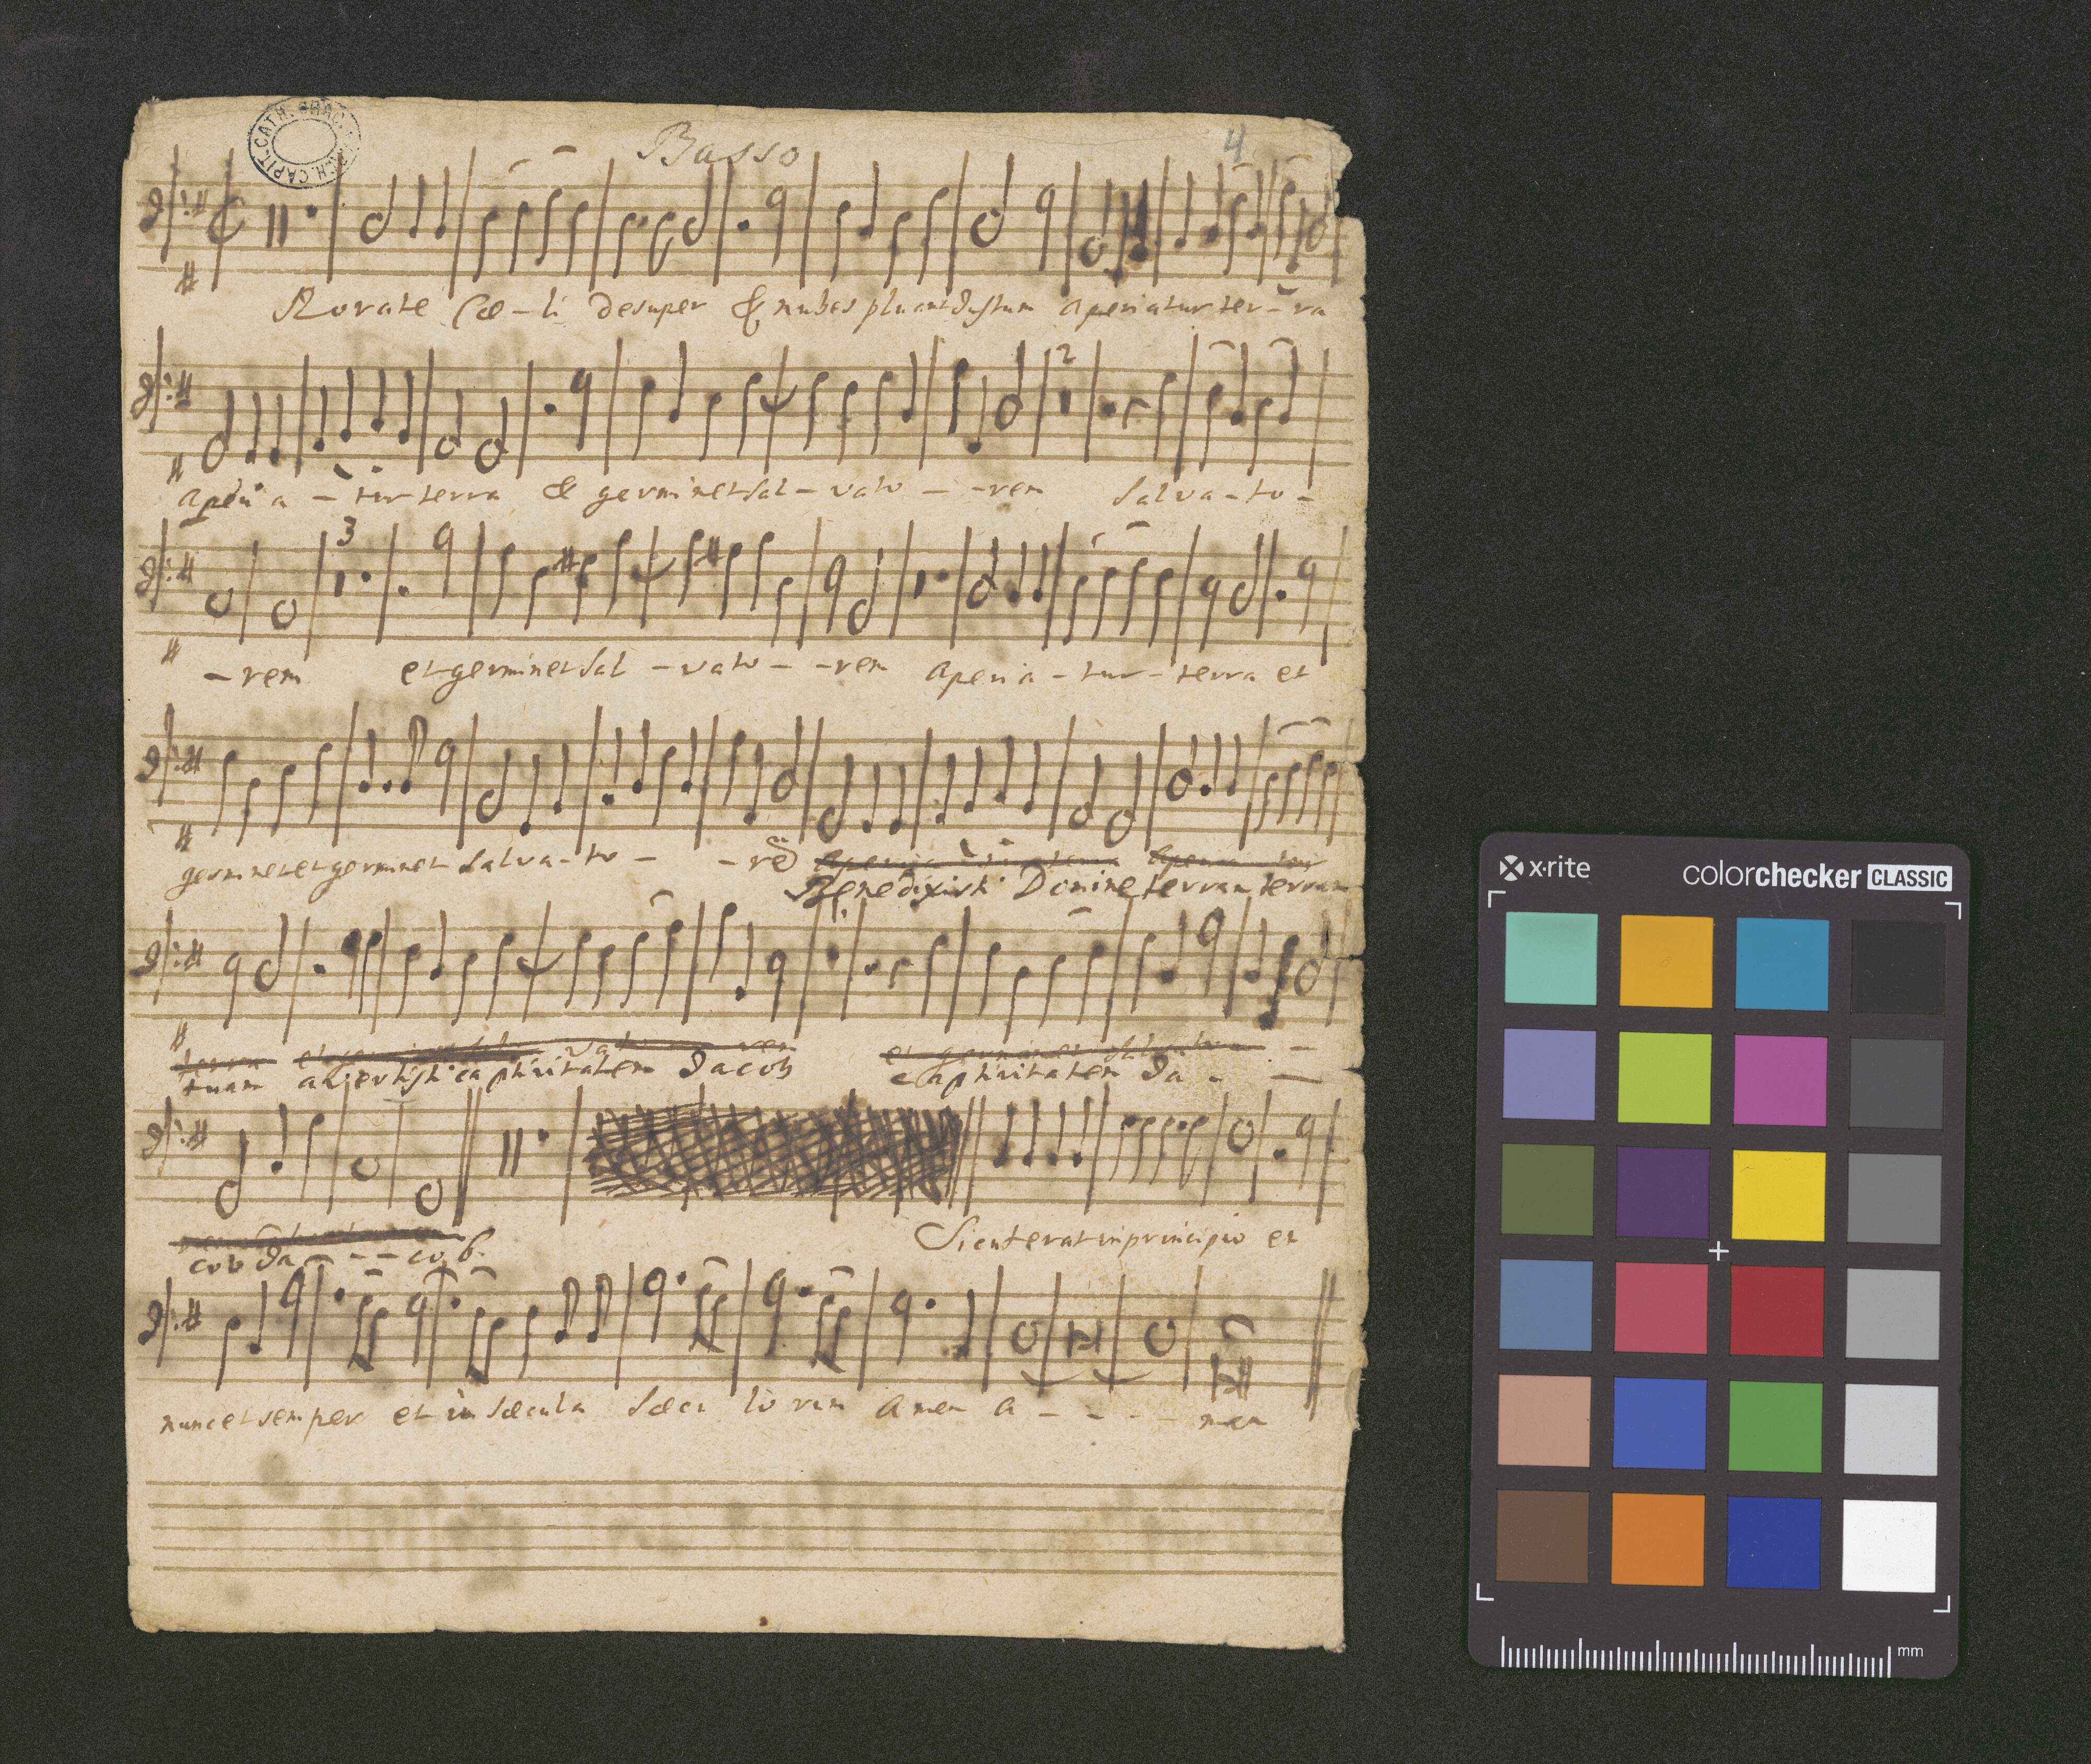 CAPIT. CATH.
Basso
4
Rorate Cæ - li desuper & nubes pluant Justum Aperiatur ter - ra
2
Aperi a - tur terra & germinet Sal - vato - - rem Salva - to -
3
- rem et germinet Sal - vato - - rem Aperi a - tur - terra et
germinet et germinet Salva - to - - rē Aperia terra Aperia tur
Benedixisti Domine terram terram
terra
tuam avertisti captivitatem Jacob captivitatem Ja - -
cob Ja - - - cob.
Sicut erat in principio et
nunc et semper et in sæcula sæcu lo rum Amen A - - - - men
x-rite
colorchecker CLASSIC
mm